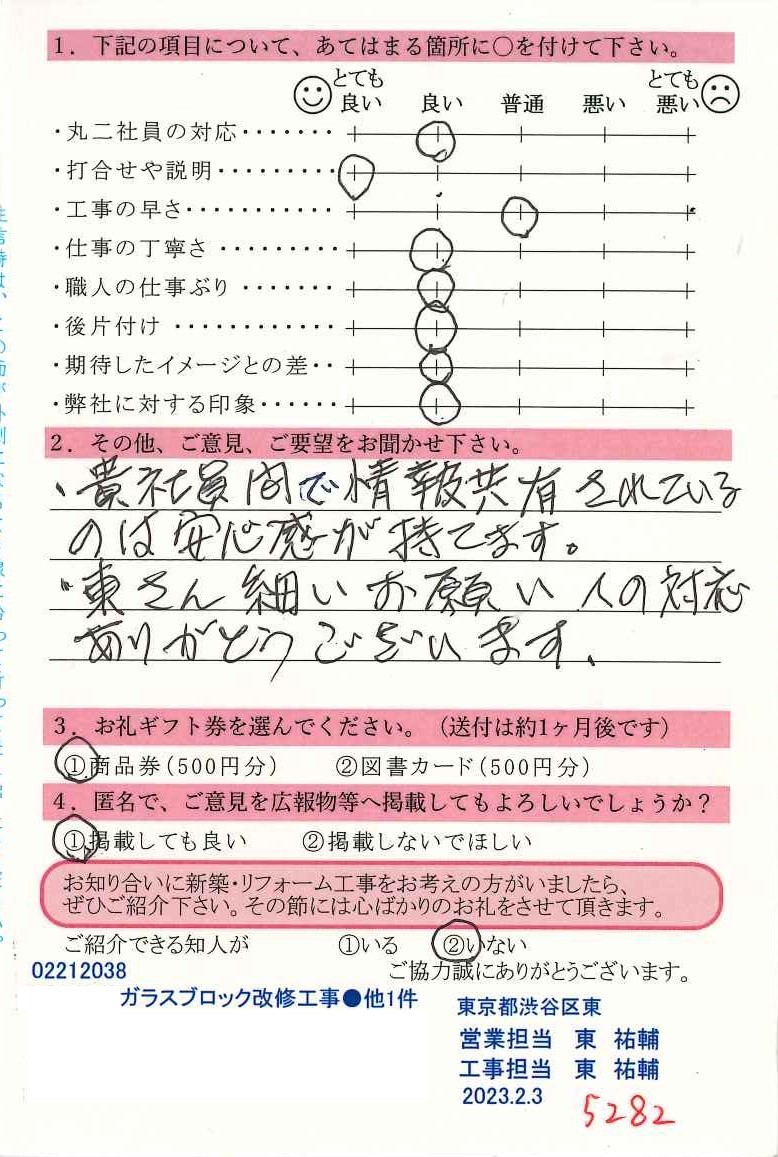 1. 下記の項目について、あてはまる箇所に○を付けて下さい。
とても良い 良い 普通 悪い とても悪い
・丸二社員の対応・・・・・・・
・打合せや説明・・・・・・・・・
・工事の早さ・・・・・・・・・・・
・仕事の丁寧さ・・・・・・・・・
・職人の仕事ぶり・・・・・・・
・後片付け・・・・・・・・・・・・
・期待したイメージとの差・・
・弊社に対する印象・・・・・・
2. その他、ご意見、ご要望をお聞かせ下さい。
、貴社員間で情報共有されている
のは安心感が持てます。
・東さん細いお願い人の対応
ありがとうございます、
3. お礼ギフト券を選んでください。(送付は約1ヶ月後です)
①商品券(500円分) ②図書カード(500円分)
4. 匿名で、ご意見を広報物等へ掲載してもよろしいでしょうか?
①掲載しても良い ②掲載しないでほしい
お知り合いに新築・リフォーム工事をお考えの方がいましたら、
ぜひご紹介下さい。その節には心ばかりのお礼をさせて頂きます。
ご紹介できる知人が ①いる ②いない
02212038
ご協力誠にありがとうございます。
ガラスブロック改修工事●他1件
東京都渋谷区東
営業担当 東 祐輔
工事担当 東 祐輔
2023.2.3
5282